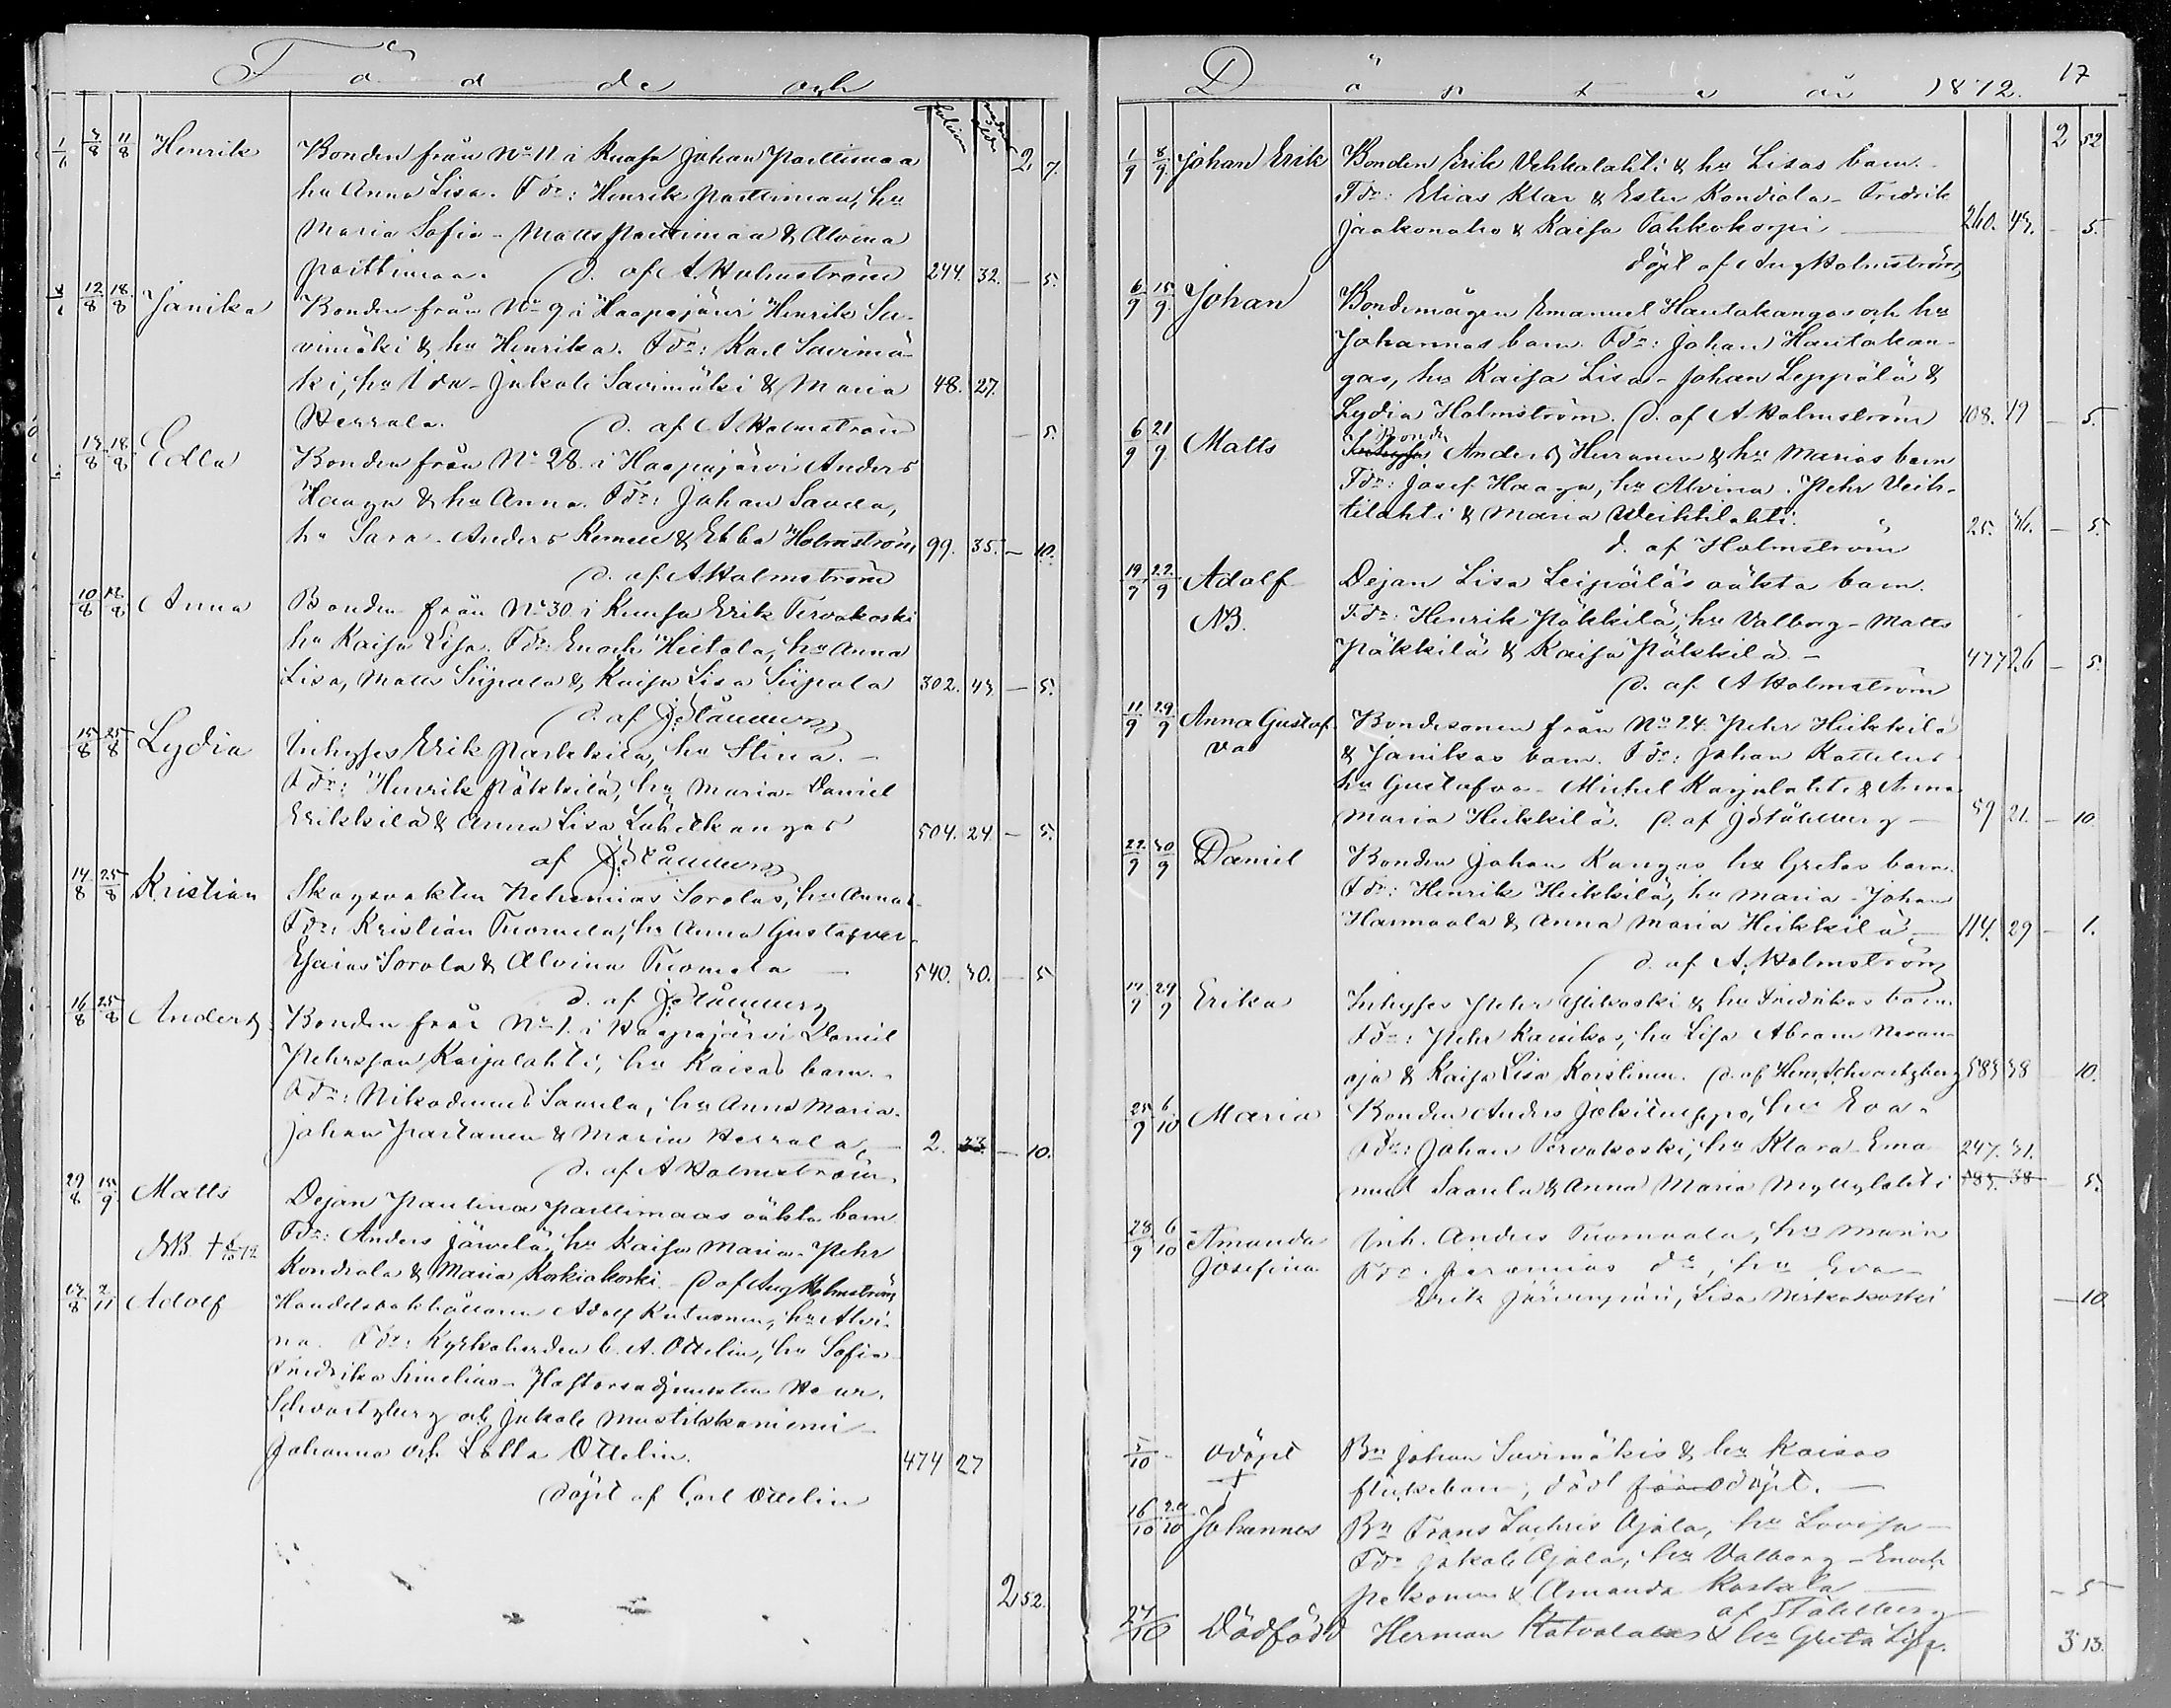 Födde och
2 7.
1/6 4/8 11/8 Henrik Bonden från No 11 i Kuusa Johan Parttimaa
hu Anna Lisa. Fdr: Henrik Parttimaa, hu
Maria Sofia - Matts Parttimaa & Alvina
Parttimaa. D. af A. Holmström 244. 32. — 5.
12/8 18/8 Janika Bonden från No 9 i Haapajärvi Henrik Sa-
vimäki & hu Henrika. Fdr: Karl Savimä-
ki, hu Ida - Jakob Savimäki & Maria 48. 27.
Herrala. D. af A Holmström — 5.
14/8 18/8 Edla Bonden från No 28 i Haapajärvi Anders
Haaga & hu Anna. Fdr: Johan Savela,
hu Sara - Anders Remell & Ebba Holmström 99. 35. — 10.
D. af A Holmström
10/8 18/8 Anna Bonden från No 30 i Kuusa Erik Tervakoski
hu Kaisa Lisa. Fdr: Enoch Hietala, hu Anna
Lisa, Matts Siipola & Kaisa Lisa Siipola 302. 43 — 5.
D. af J Ståhlberg
15/8 25/8 Lydia Inhyses Erik Parkkila, hu Stina. —
Fdr: Henrik Päkkilä, hu Maria - Daniel
Erikkilä & Anna Lisa Lähetkangas 504. 24 — 5.
af J Ståhlberg
14/8 25/8 Kristian Skogvakten Nehemias Sorolas, hu Annas.
Fdr: Kristian Tuomela, hu Anna Gustafva -
Esaias Sorola & Alvina Tuomela — 540. 30. — 5
D. af J Ståhlberg
16/8 25/8 Anders Bonden från No 1. i Haapajärvi Daniel
Pehrsson Karjalahti, hu Kaisas barn.
Fdr: Nikodemus Saarela, hu Anna Maria.
Johan Partanen & Maria Herrala — 2. 33. — 10.
D. af A Holmström
29/8 15/9 Matts Dejan Paulina Parttimaas oäkta barn
NB. † Fdr: Anders Järvelä, hu Kaisa Maria. Pehr
Kondiala & Maria Korkiakoski. D af Aug Holmström
2/11 Adolf Handelsbokhållaren Adolf Kutvonen, hu Alvi-
na. Fdr: Kyrkoherden C. A. Ottelin, hu Sofia
Fredrika Simelius - Pastorsadjunkten Henr.
Schvartzberg och Jakob Mustikkaniemi -
Johanna och Lotta Ottelin. 474 27
döpt af Carl Ottelin
2 52.
Döpte år 1872. 17
2 52
1/9 8/9 Johan Erik Bonden Erik Vehkalahti & hu Lisas barn.
Fdr: Elias Klar & Ester Kondiala - Fredrik
Jaakonaho & Kaisa Tahkokorpi — 260. 43. — 5.
döpt af Aug Holmström
6/9 15/9 Johan Bondemågen Emanuel Hautakangas och hu
Johannas barn. Fdr: Johan Hautakan-
gas, hu Kaisa Lisa - Johan Leppälä &
Lydia Holmström. D. af A. Holmström 108. 19 — 5.
6/9 21/9 Matts Bond. Anders Huranen & hu Marias barn
Fdr: Josef Haaga, hu Alvina. Pehr Veih-
tilahti & Maria Weihtilahti 25. 36. — 5.
d. af Holmström
19/9 22/9 Adolf Dejan Lisa Leipäläs oäkta barn.
NB. Fdr: Henrik Päkkilä, hu Valborg - Matts
Päkkilä & Kaisa Päkkilä — 477 26 — 5.
D. af A Holmström
11/9 29/9 Anna Gustaf- Bondesonen från No 24. Pehr Heikkilä
va & Janikas barn. Fdr: Johan Kattelus
hu Gustafva - Michel Karjalahti & Anna
Maria Heikkilä. D. af J Ståhlberg — 59 21. — 10.
22/9 30/9 Daniel Bonden Johan Kangas hu Gretas barn.
Fdr: Henrik Heikkilä, hu Maria - Johan
Harmaala & Anna Maria Heikkilä — 114. 29 — 1.
D. af A. Holmström
29/9 Erika Inhyses Pehr Ylikoski & hu Fredrikas barn
Fdr: Pehr Karsikas, hu Lisa Abram Nevan-
oja & Kaisa Lisa Korslinen. D. af Henr. Schvartzberg 583 38 10.
25/9 6/10 Maria Bonden Anders Jokiueppo, hu Eva.
Fdr: Johan Tervakoski, hu Klara Ema- 247. 31.
nuel Saarela & Anna Maria Myllylahti 583. 38 — 5.
28/9 6/10 Amanda Inh. Anders Tuomaala, hu Maria
Josefina Fdr. Jeremias do, hu Eva -
Erik Järvenpää, Lisa Niskakoski — 10
5/10 - odöpt Bn Johan Savimäkis & hu Kaisas
† flickebarn, död för odöpt. —
16/10 20/10 Johannes Bn Frans Sachris Ojala, hu Lovisa —
Fdr Jakob Ojala, hu Valborg - Enoch
Pekonen & Amanda Kostela — - 5
af Ståhlberg
27/10 Dödfödd Herman Katvalalas & hu Greta Lisa.
3 13.